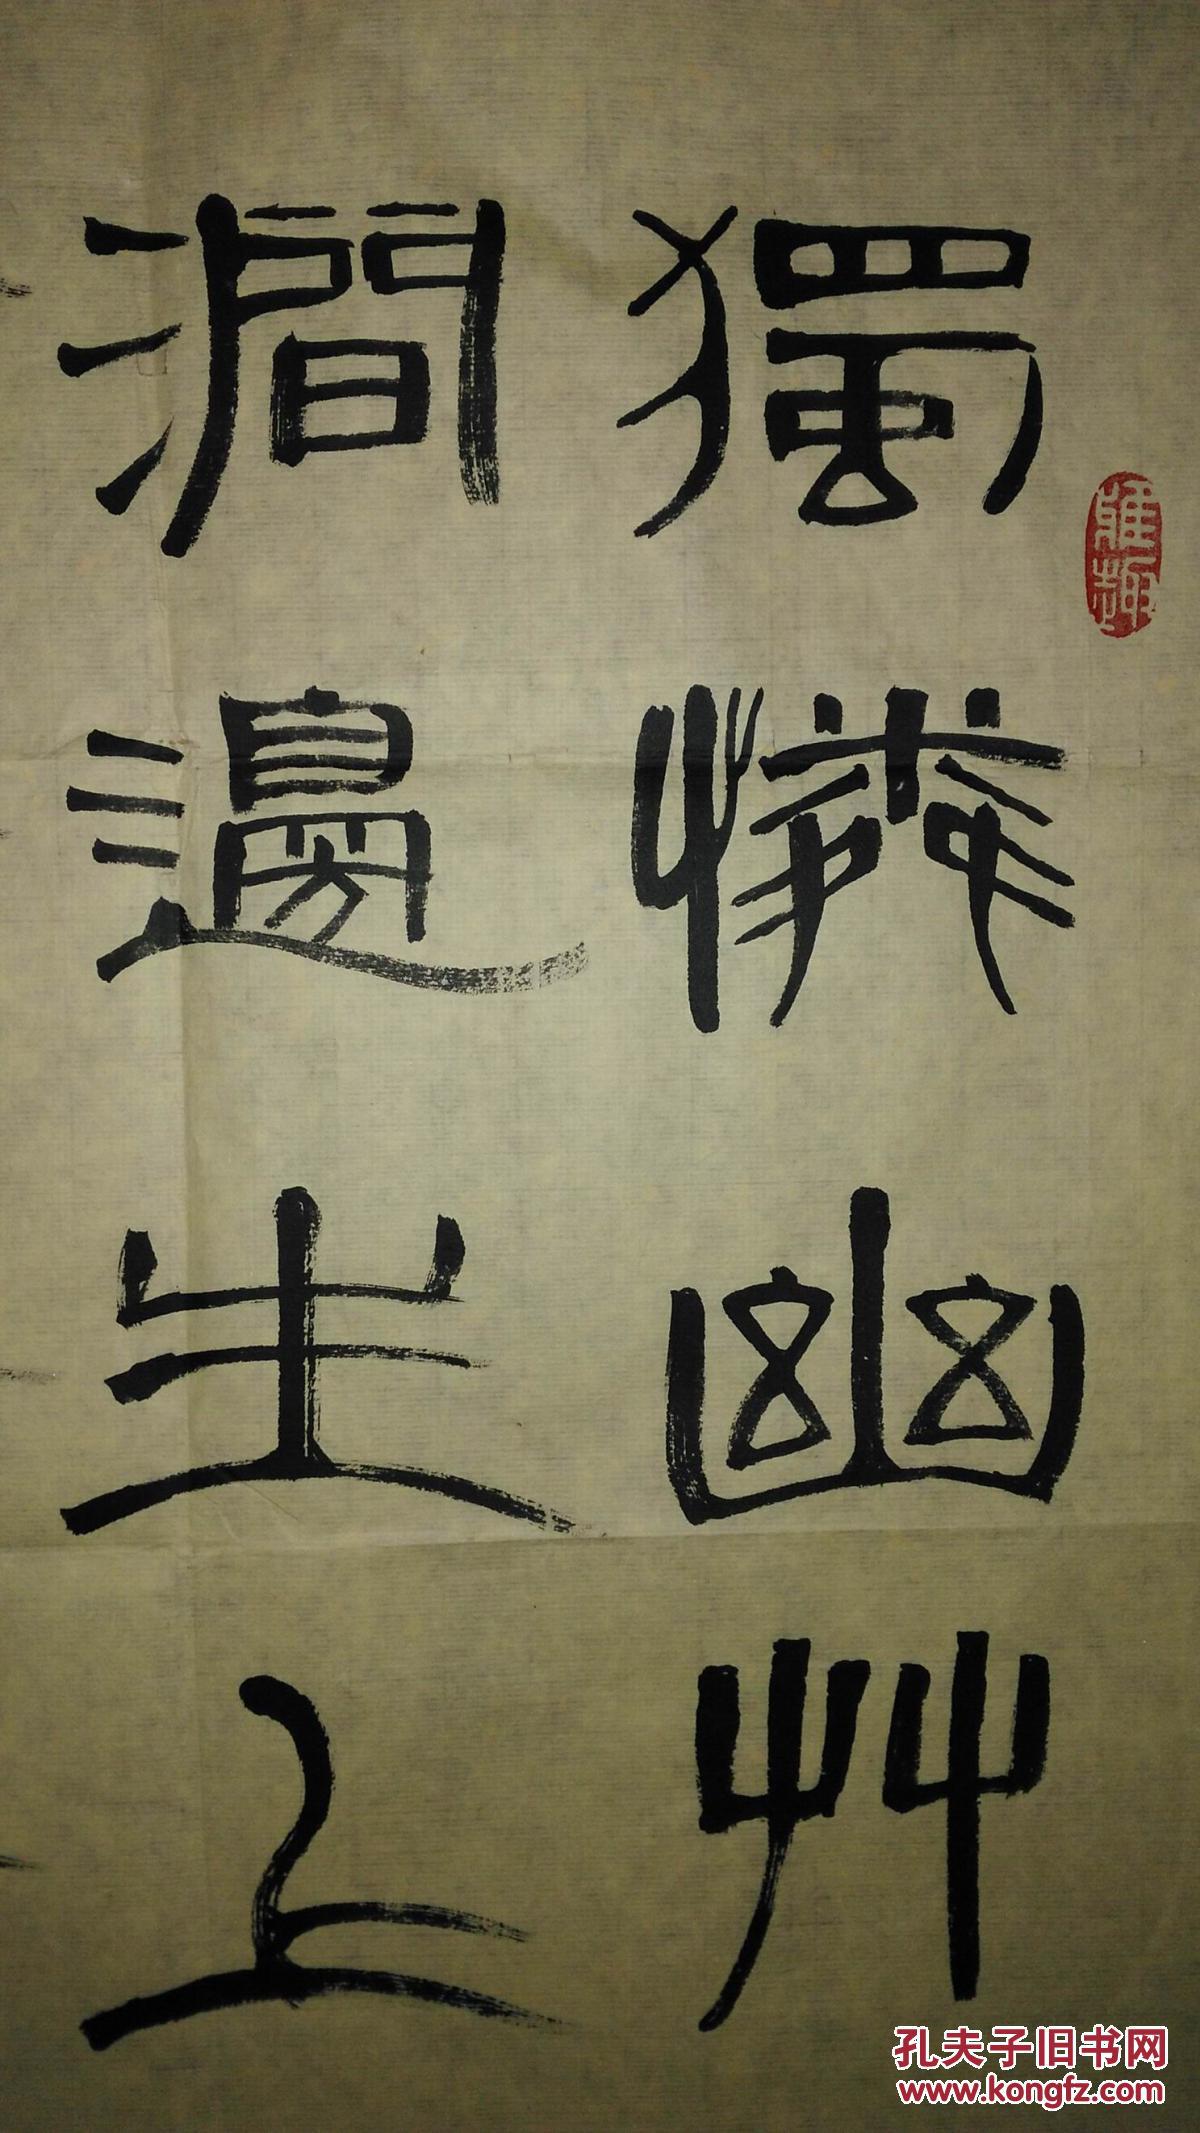 獨憐幽艸
澗邊生上
雅趣
孔夫子旧书网
www.kongfz.com